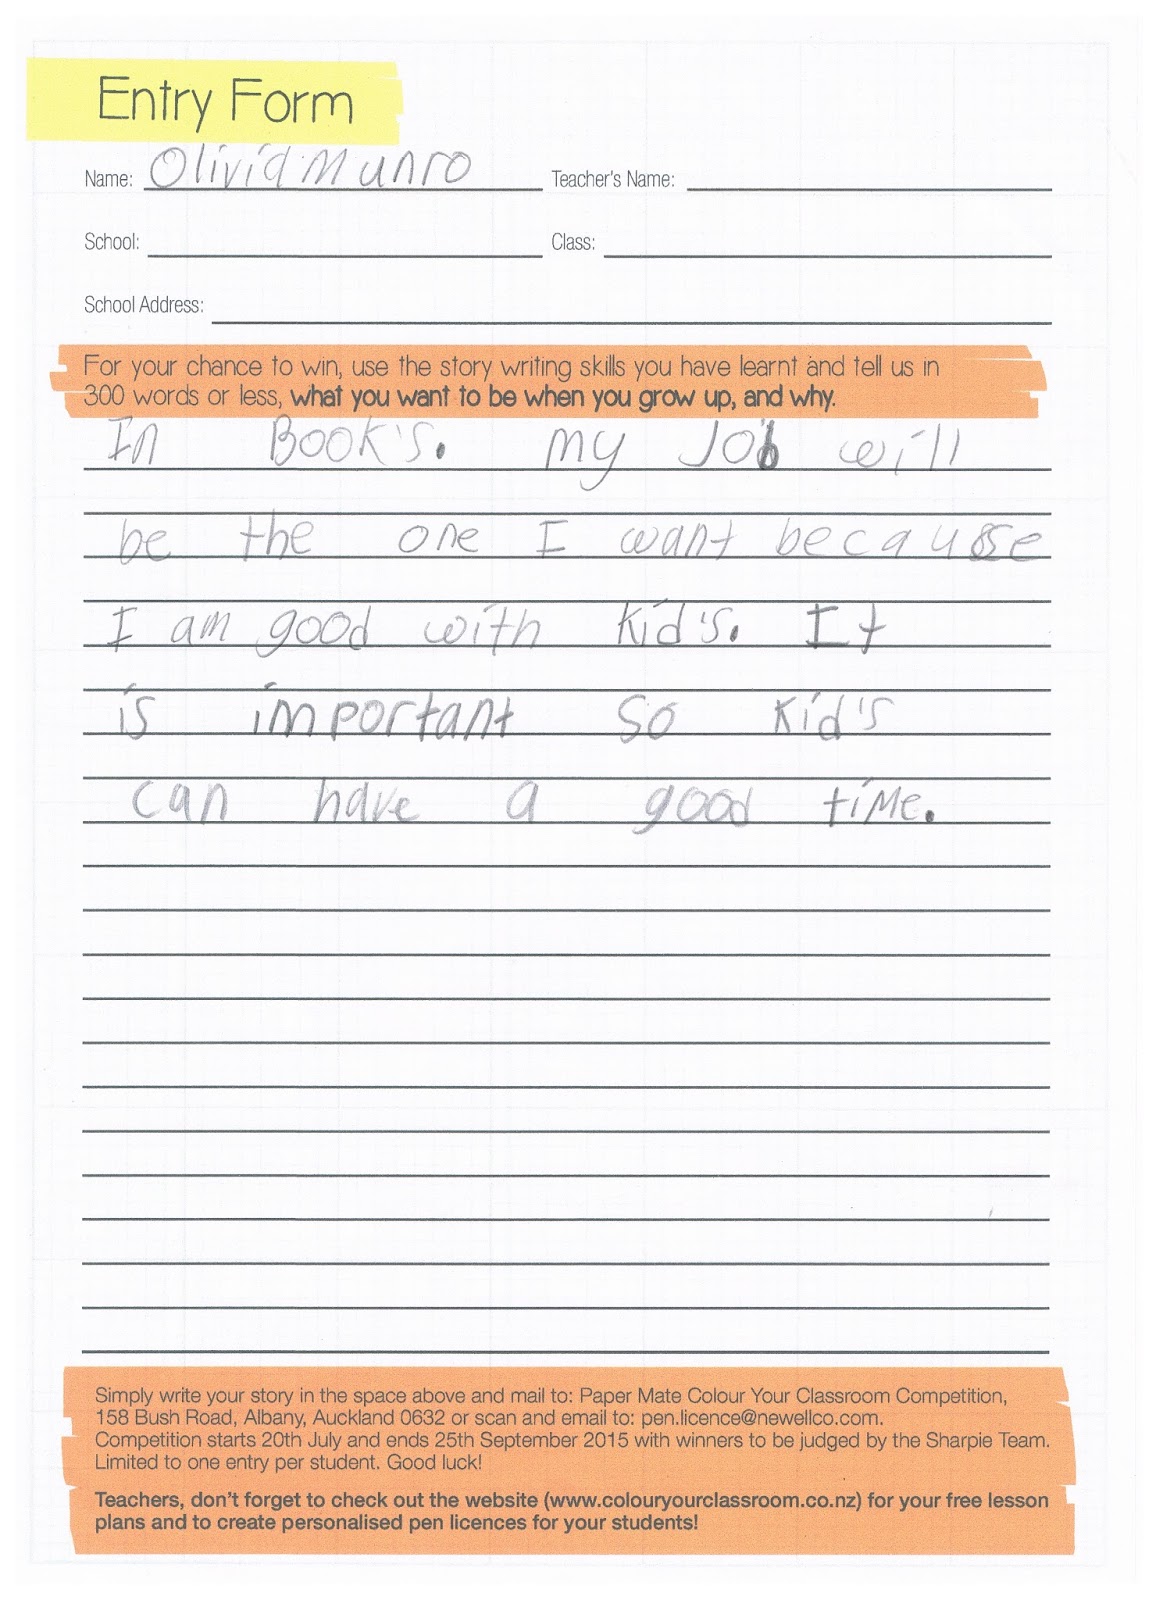 Entry Form
Name: Olivia Munro Teacher's Name:
School: Class:
School Address:
For your chance to win, use the story writing skills you have learnt and tell us in
300 words or less, what you want to be when you grow up, and why.
In Book's. my Job will
be the one I want because
I am good with kid's. It
is important so kid's
can have a good time.
Simply write your story in the space above and mail to: Paper Mate Colour Your Classroom Competition,
158 Bush Road, Albany, Auckland 0632 or scan and email to: pen.licence@newellco.com.
Competition starts 20th July and ends 25th September 2015 with winners to be judged by the Sharpie Team.
Limited to one entry per student. Good luck!
Teachers, don't forget to check out the website (www.colouryourclassroom.co.nz) for your free lesson
plans and to create personalised pen licences for your students!